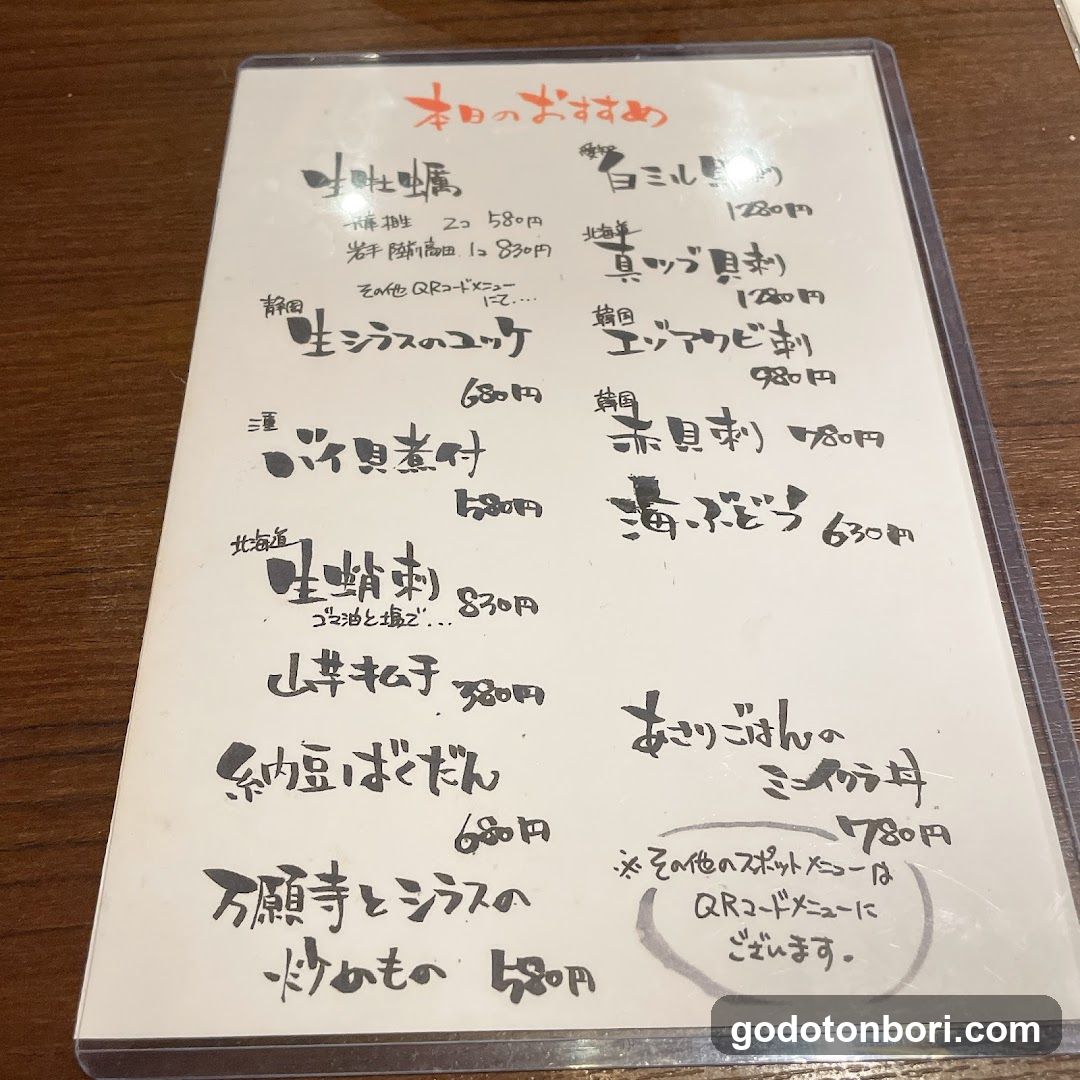 本日のおすすめ
生牡蠣
兵庫 相生 2コ 580円
岩手 陸前高田 1コ 830円
その他QRコードメニュー
にて....
静岡
生シラスのユッケ
680円
三重
バイ貝煮付
580円
北海道
生蛸刺 830円
ゴマ油と塩で...
山芋キムチ 380円
納豆ばくだん
680円
万願寺とシラスの
炒めもの 580円
愛知
白ミル貝刺
1280円
北海道
真ツブ貝刺
1280円
韓国
エゾアワビ刺
980円
韓国
赤貝刺 780円
海ぶどう 630円
あさりごはんの
ミニイクラ丼
780円
※その他のスポットメニューは
QRコードメニューに
ございます。
godotonbori.com